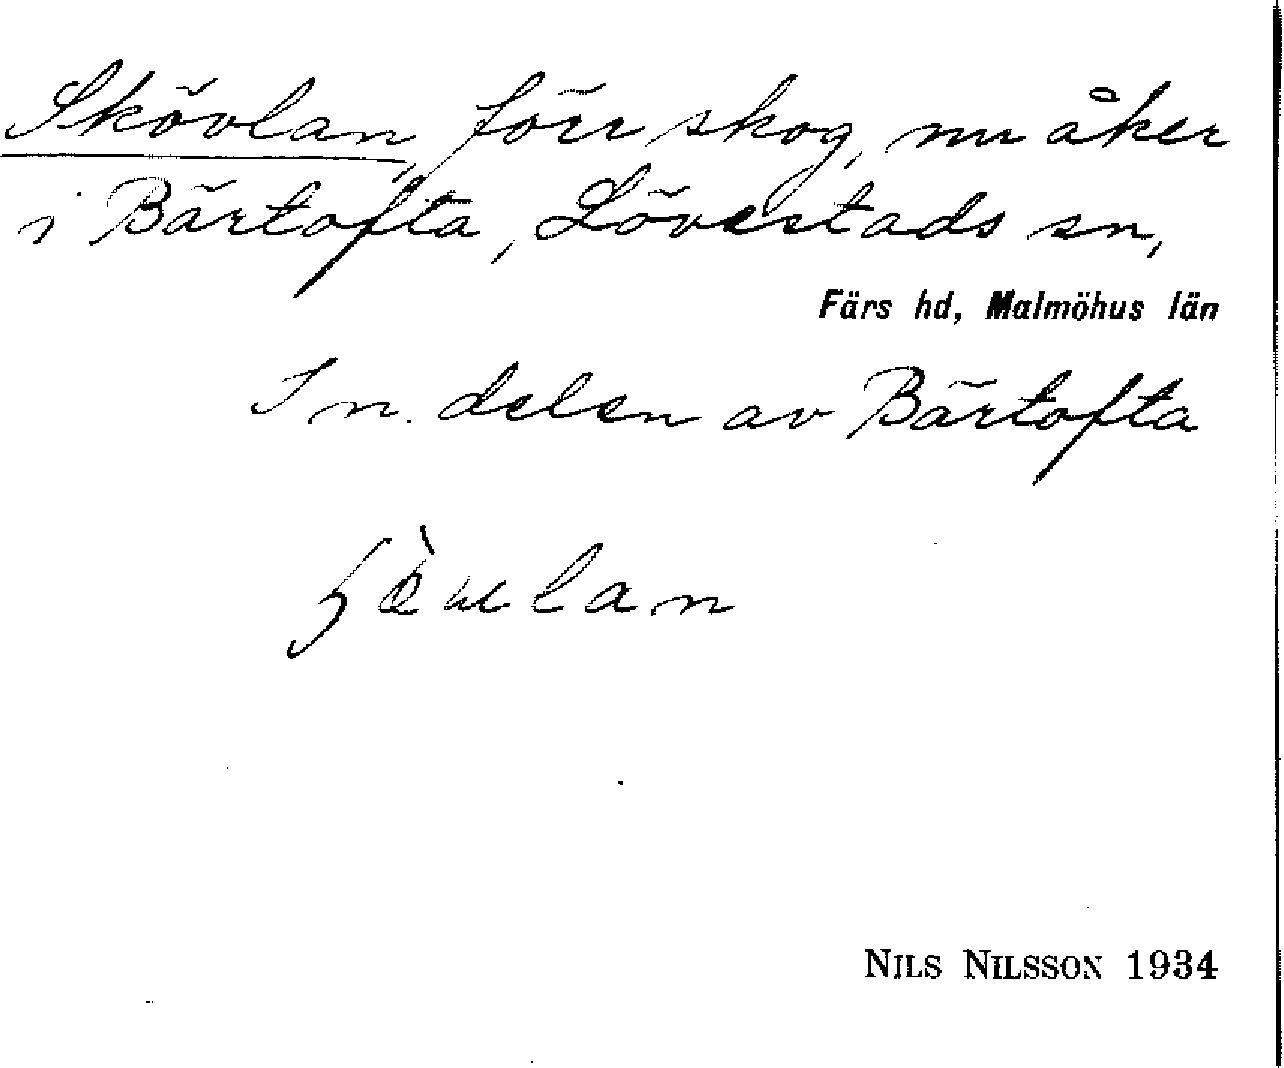 Skövlan, förr skog, nu åker
i Bärtofta, Lövestads sn,
Färs hd, Malmöhus län
I n. delen av Bärtofta
NILS NILSSON 1934